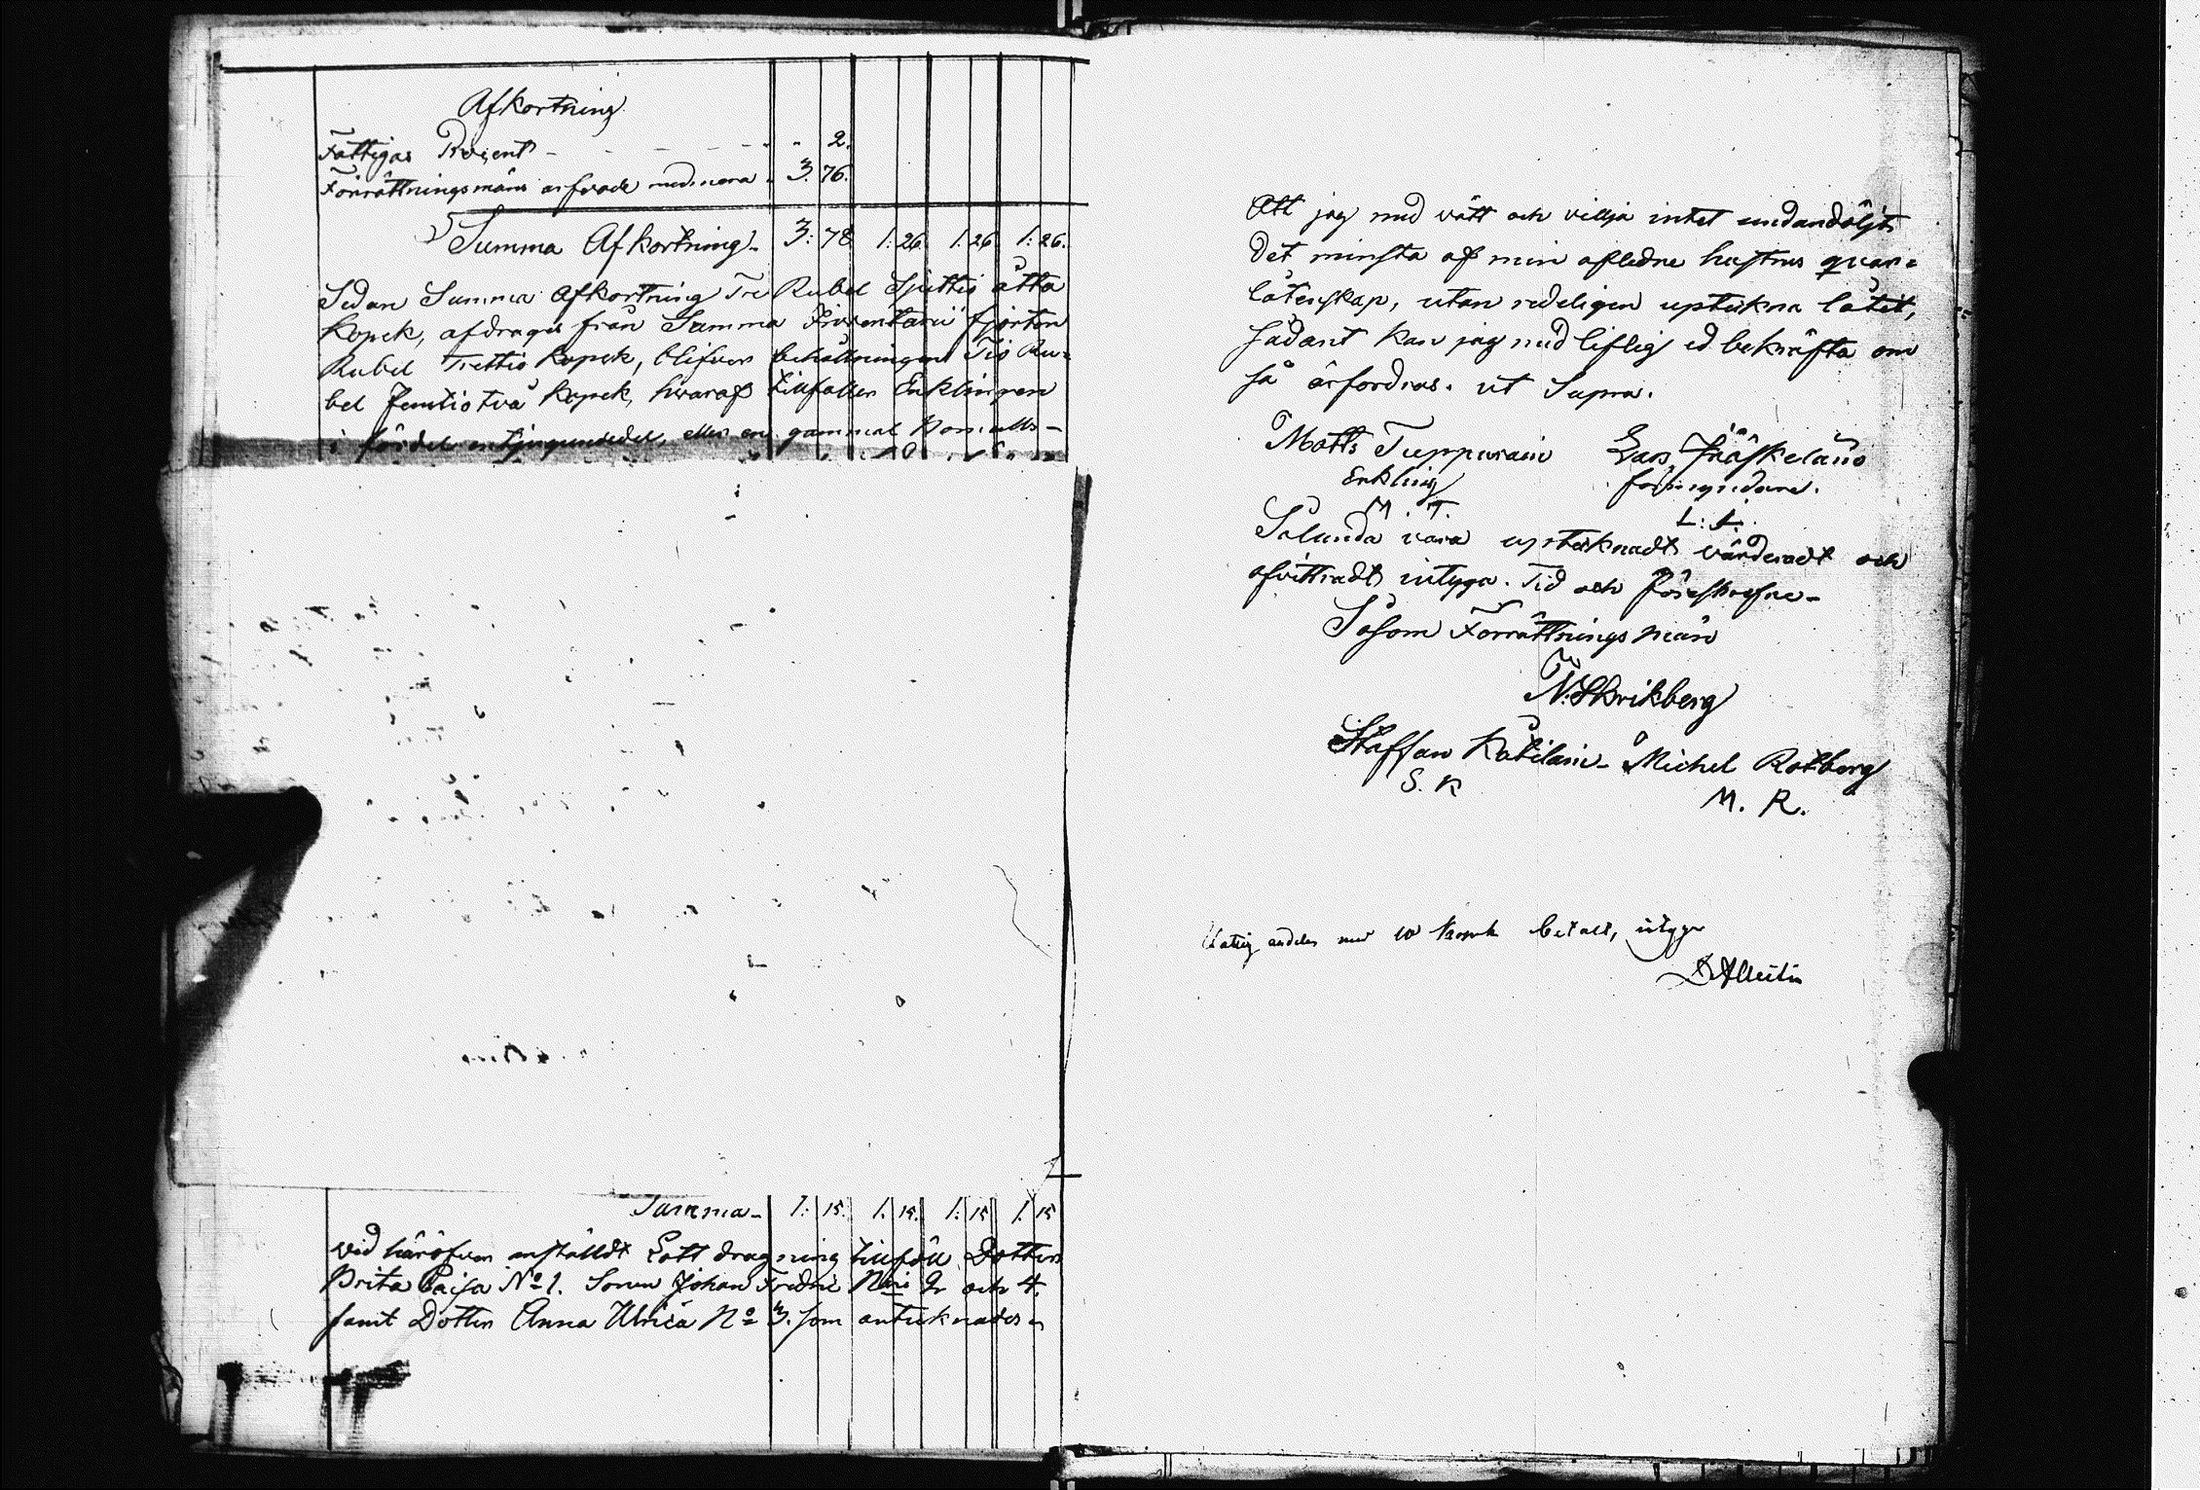 Afkortning
Fattigas Procent - - - - - - " 2.
Förrättningsmäns arfvode med mera. 3. 76.
Summa Afkortning - 3: 78 1: 26. 1: 26 1: 26.
Sedan Summa Afkortning Tre Rubel Sjuttio åtta
Kopek, afdrages från Summa Inventarii fjorton
Rubel Trettio Kopek, blifver behållningen Tio Ru=
bel femtio två Kopek, hvaraf tillfaller Enklingen
i fördel en tjugundedel, eller en gammal
Summa - 1: 15. 1. 15. 1. 15 1. 15
Vid häröfver anstäldt Lott dragning tillföll Dottren
Brita Caisa No 1. Sonen Johan Fredric No 2 och 4.
samt Dottren Anna Ulrica No 3. som antecknades
Att jag med vätt och vilja intet undandöljt
det minsta af min afledne hustrus quar=
låtenskap, utan redeligen uptekna låtit,
sådant kan jag med liflig ed bekräfta om
så ärfordras. ut Supra.
Matts Tuppurain Lars Jääskeläin
Enkling förmyndare.
M. T. L: J.
Sålunda vara upteknadt värderadt och
afvittradt intyga. Tid och föreskrefne -
Såsom Förrättnings män
N. Skrikberg
Staffan Katilain - Michel Rotberg
S. K M. R.
Fattig andelen med 10 Kopek betalt, intygar